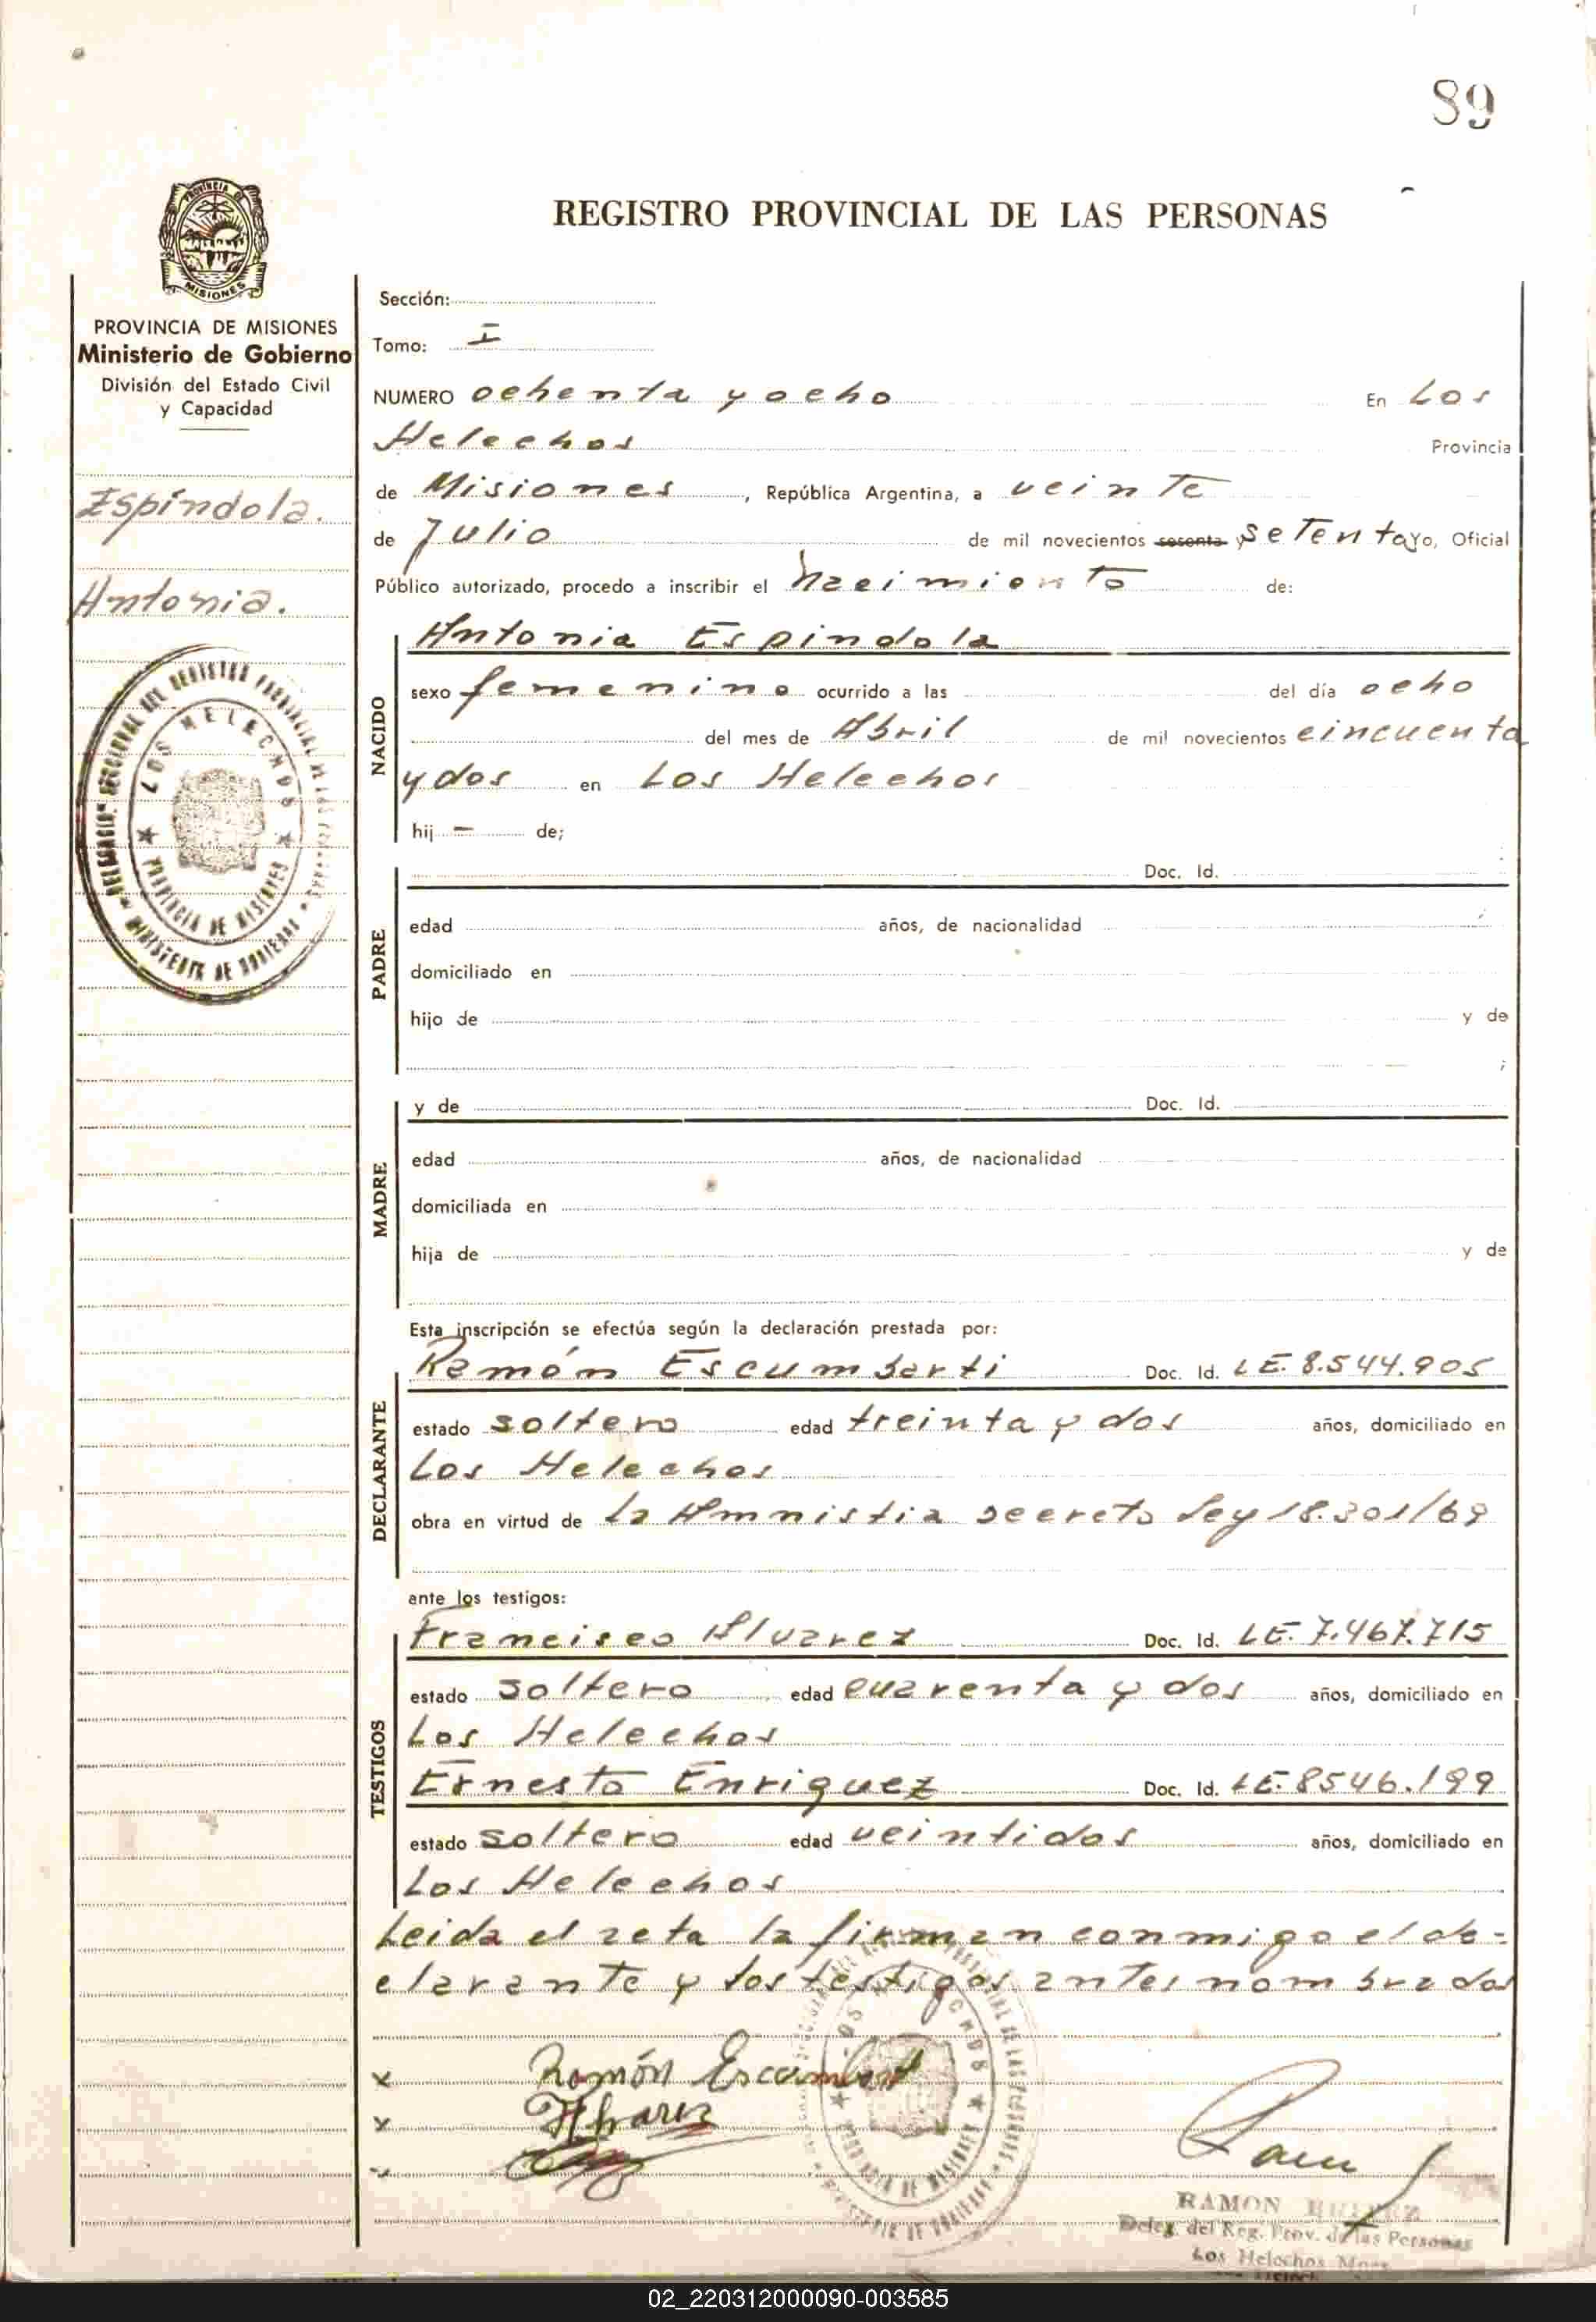 89
REGISTRO PROVINCIAL DE LAS PERSONAS
PROVINCIA DE MISIONES
Ministerio de Gobierno
División del Estado Civil
y Capacidad
Espíndola.
Antonia.
LOS HELECHOS
PROVINCIA DE MISIONES
Sección:
Tomo: I
NUMERO ochenta y ocho En Los
Helechos Provincia
de Misiones, República Argentina, a veinte
de Julio de mil novecientos sesenta y setenta yo, Oficial
Público autorizado, procedo a inscribir el nacimiento de:
NACIDO
Antonia Espindola
sexo femenino ocurrido a las del día ocho
del mes de Abril de mil novecientos cincuenta
y dos en Los Helechos
hij - de;
PADRE
Doc. Id.
edad años, de nacionalidad
domiciliado en
hijo de y de
;
MADRE
y de Doc. Id.
edad años, de nacionalidad
domiciliada en
hija de y de
Esta inscripción se efectúa según la declaración prestada por:
DECLARANTE
Ramón Escumbarti Doc. Id. LE. 8.544.905
estado soltero edad treinta y dos años, domiciliado en
Los Helechos
obra en virtud de la Amnistia Decreto Ley 18.301/69
ante los testigos:
TESTIGOS
Francisco Alvarez Doc. Id. LE. 7.467.715
estado soltero edad cuarenta y dos años, domiciliado en
Los Helechos
Ernesto Enriquez Doc. Id. LE. 8546.199
estado soltero edad veintidos años, domiciliado en
Los Helechos
Leida el acta la firman conmigo el de-
clarante y los testigos antes nombrados
x Ramón
x Alvarez
x
RAMON
Deleg. del Reg. Prov. de las Personas
Los Helechos
02_220312000090-003585